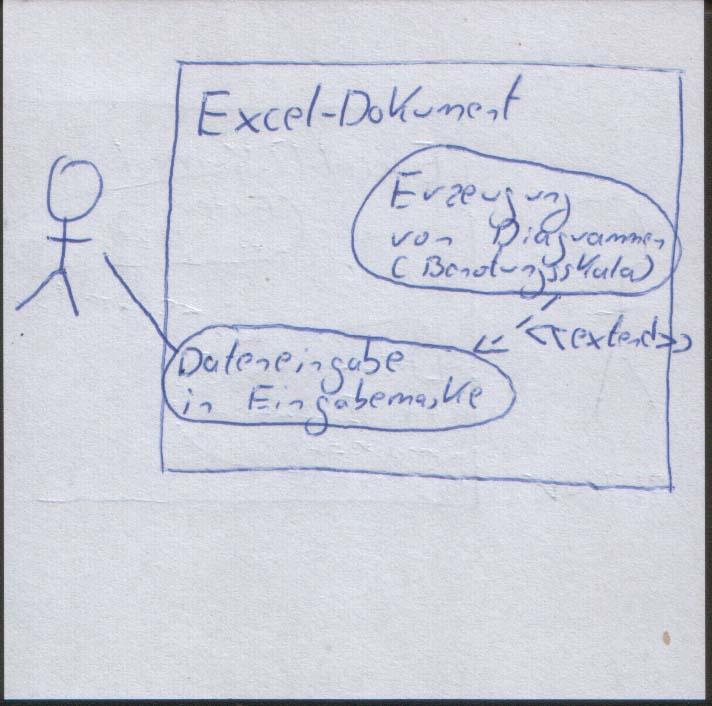 Excel-Dokument
Erzeugung
von Diagrammen
(
Dateneingabe
in Eingabemaske
<<extend>>